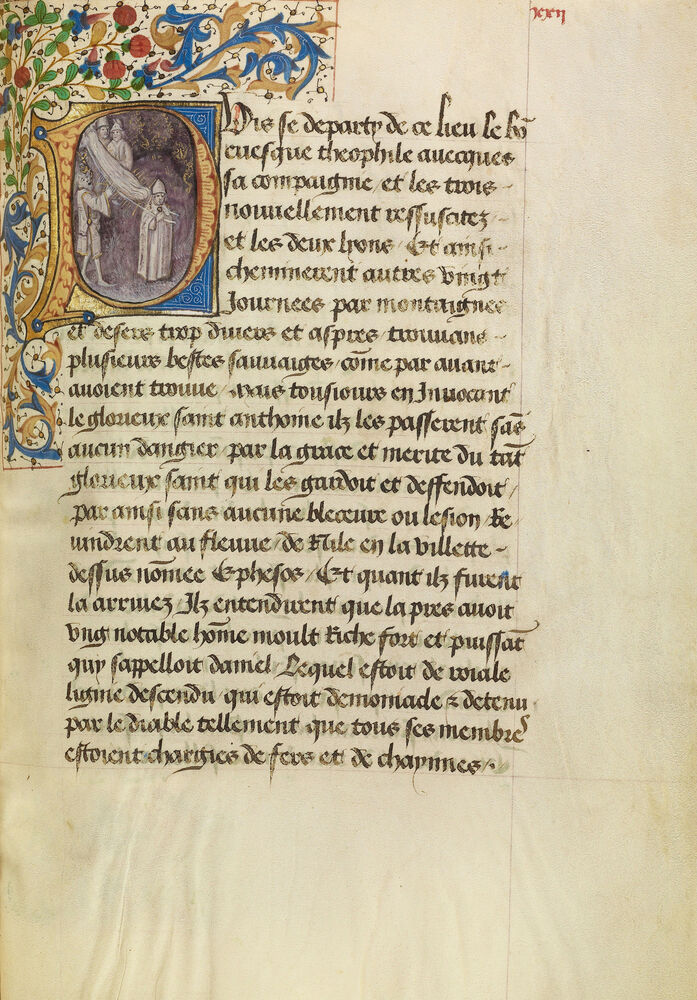 xxij
Puis se departy de ce lieu le bõ
euesque theophile auecques
sa compaignie / et les trois
nouuellement ressuscitez
et les deux lyons / Et ainsi
cheminerent autres vingt
Journees par montaignes
et desers trop diuers et aspres / trouuans
plusieurs bestes sauuaiges / cõme par auant
auoient trouue / mais tousiours en Inuocant
le glorieux saint anthoine ilz les passerent sãs
aucun dangier / par la grace et merite du tãt
glorieux saint qui les gardoit et deffendoit /
par ainsi sans aucune bleceure ou lesion / Re
uindrent au fleuue / de Nile en la villette
dessus nõmee Ephesos / Et quant ilz furent
la arriuez / Ilz entendirent que la pres auoit
vng notable hõme moult Riche fort et puissãt
quy sappelloit daniel / Lequel estoit de roiale
lignie descendu / qui estoit demoniacle & detenu
par le diable tellement que tous ses membres
estoient chargies de fers et de chaynnes /